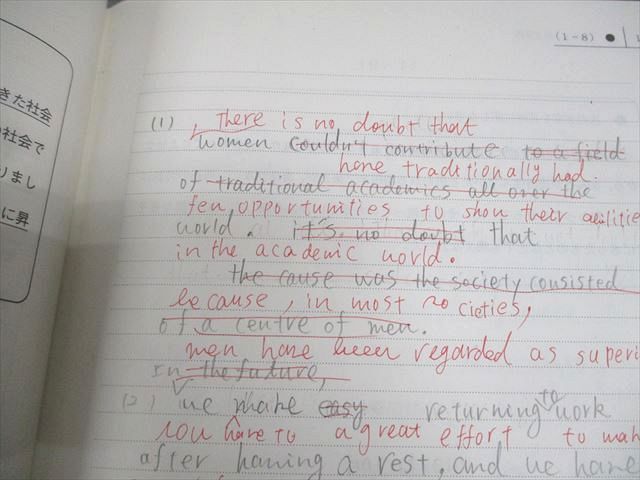 きた社会
社会で
りまし
に昇
(1-8) ●
(1) , There is no doubt that
women couldn't contribute to a field
have traditionally had.
of traditional academics all over the
few opportunities to show their abilities
world. it's no doubt that
in the academic world.
the cause was the society consisted
because, in most societies,
of a centre of men.
men have been regarded as superi
In the future,
(2) we make easy returning to work
you have to a great effort to mak
after having a rest, and we have